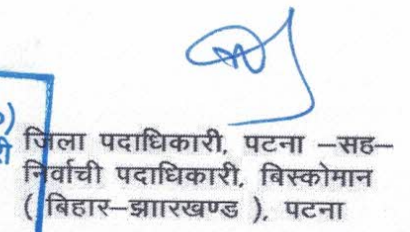 जिला पदाधिकारी, पटना –सह–
निर्वाची पदाधिकारी, बिस्कोमान
( बिहार–झाारखण्ड ), पटना